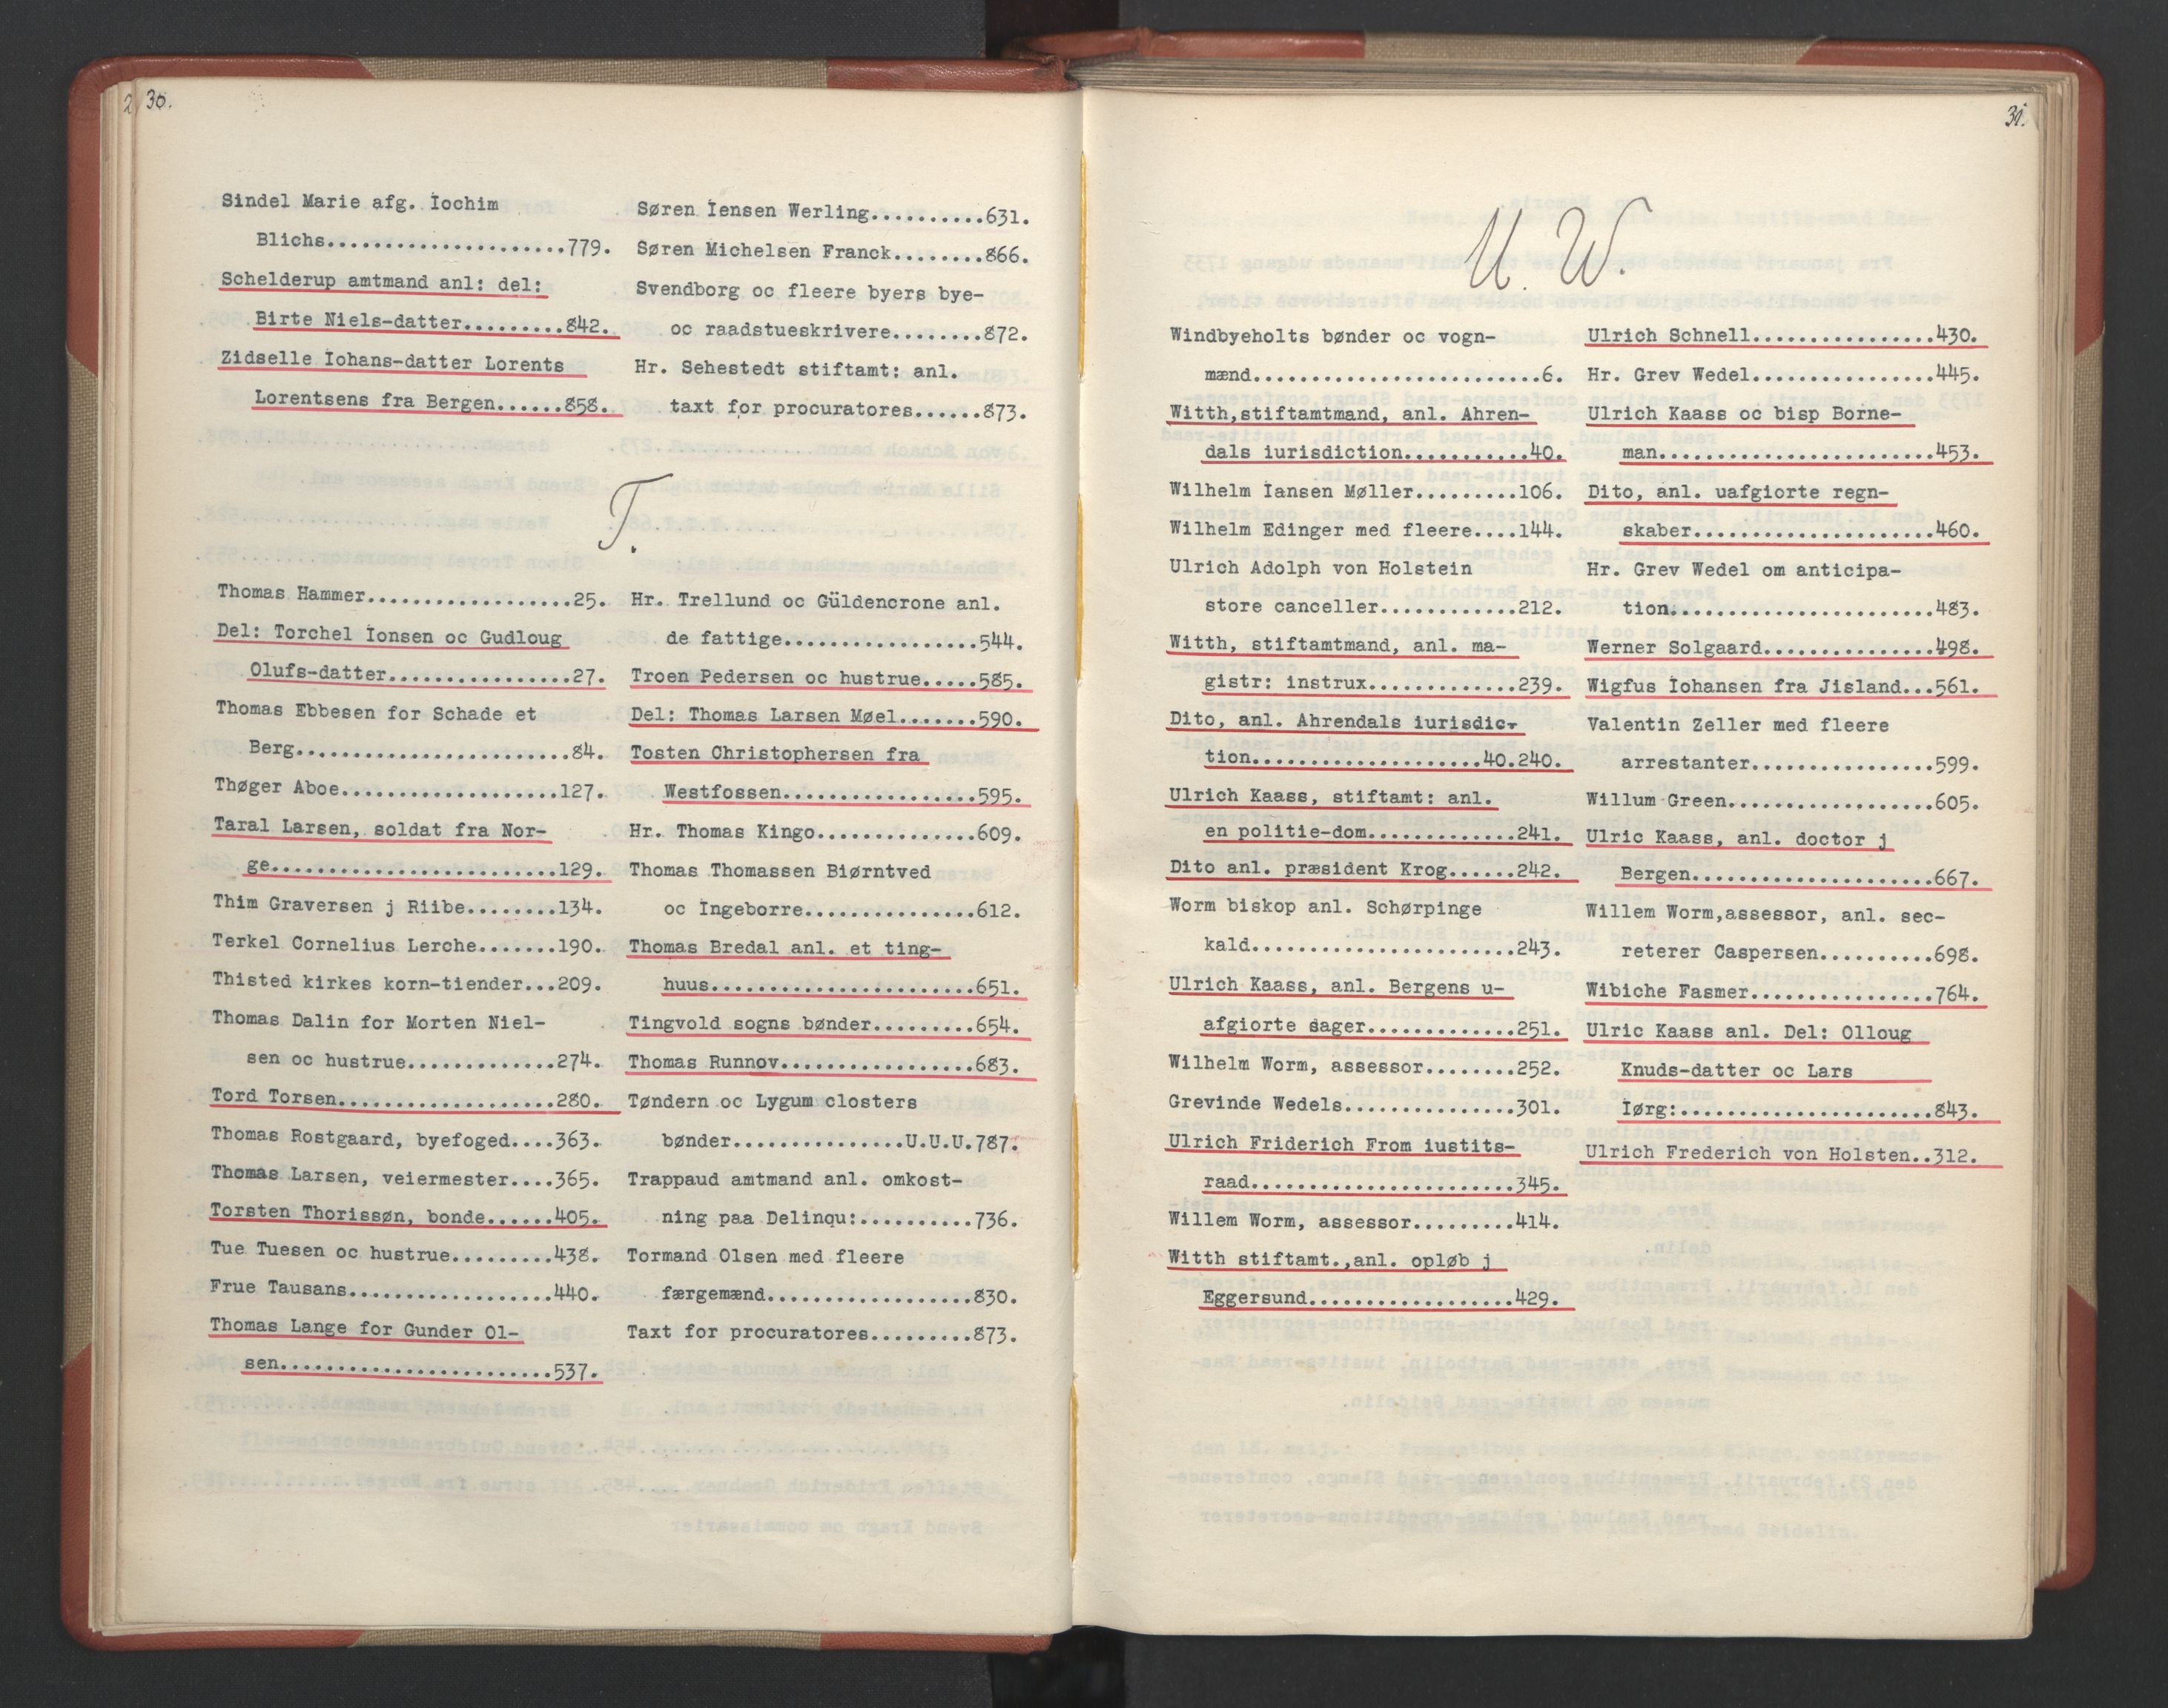 2
30.
Sindel Marie afg. Iochim
Blichs.....................779.
Schelderup amtmand anl: del:
Birte Niels-datter.........842.
Zidselle Iohans-datter Lorents
Lorentsens fra Bergen......858.
Søren Iensen Werling..........631.
Søren Michelsen Franck........866.
Svendborg oc fleere byers bye-
oc raadstueskrivere........872.
Hr. Sehestedt stiftamt: anl.
taxt for procuratores......873.
T.
Thomas Hammer..................25.
Del: Torchel Ionsen oc Gudloug
Olufs-datter................27.
Thomas Ebbesen for Schade et
Berg........................84.
Thøger Aboe...................127.
Taral Larsen, soldat fra Nor-
ge.........................129.
Thim Graversen j Riibe........134.
Terkel Cornelius Lerche.......190.
Thisted kirkes korn-tiender...209.
Thomas Dalin for Morten Niel-
sen oc hustrue.............274.
Tord Torsen...................280.
Thomas Rostgaard, byefoged....363.
Thomas Larsen, veiermester....365.
Torsten Thorissøn, bonde......405.
Tue Tuesen oc hustrue.........438.
Frue Tausans..................440.
Thomas Lange for Gunder Ol-
sen........................537.
Hr. Trellund oc Güldencrone anl.
de fattige.................544.
Troen Pedersen oc hustrue.....585.
Del: Thomas Larsen Møel.......590.
Tosten Christophersen fra
Westfossen.................595.
Hr. Thomas Kingo..............609.
Thomas Thomassen Biørntved
oc Ingeborre...............612.
Thomas Bredal anl. et ting-
huus.......................651.
Tingvold sogns bønder.........654.
Thomas Runnov.................683.
Tøndern oc Lygum closters
bønder...............U.U.U.787.
Trappaud amtmand anl. omkost-
ning paa Delinqu:..........736.
Tormand Olsen med fleere
færgemænd..................830.
Taxt for procuratores.........873.
31.
U. W.
Windbyeholts bønder oc vogn-
mænd.........................6.
Witth,stiftamtmand, anl. Ahren-
dals iurisdiction...........40.
Wilhelm Iansen Møller.........106.
Wilhelm Edinger med fleere....144.
Ulrich Adolph von Holstein
store canceller............212.
Witth, stiftamtmand, anl. ma-
gistr: instrux.............239.
Dito, anl. Ahrendals iurisdic-
tion....................40.240.
Ulrich Kaass, stiftamt: anl.
en politie-dom.............241.
Dito anl. præsident Krog......242.
Worm biskop anl. Schørpinge
kald.......................243.
Ulrich Kaass, anl. Bergens u-
afgiorte sager.............251.
Wilhelm Worm, assessor........252.
Grevinde Wedels...............301.
Ulrich Friderich From iustits-
raad.......................345.
Willem Worm, assessor.........414.
Witth stiftamt.,anl. opløb j
Eggersund..................429.
Ulrich Schnell................430.
Hr. Grev Wedel................445.
Ulrich Kaass oc bisp Borne-
man........................453.
Dito, anl. uafgiorte regn-
skaber.....................460.
Hr. Grev Wedel om anticipa-
tion.......................483.
Werner Solgaard...............498.
Wigfus Iohansen fra Jisland...561.
Valentin Zeller med fleere
arrestanter................599.
Willum Green..................605.
Ulric Kaass, anl. doctor j
Bergen.....................667.
Willem Worm,assessor, anl. sec-
reterer Caspersen..........698.
Wibiche Fasmer................764.
Ulric Kaass anl. Del: Olloug
Knuds-datter oc Lars
Iørg:......................843.
Ulrich Frederich von Holsten..312.